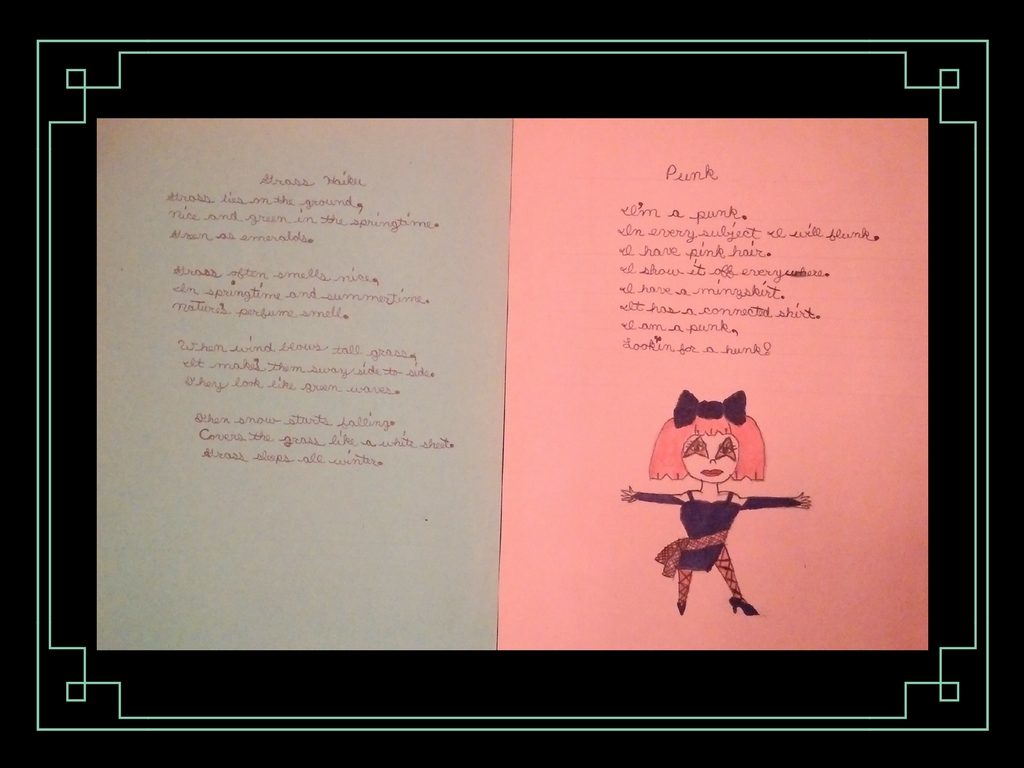 Grass Haiku
Grass lies on the ground,
Nice and green in the springtime.
Green as emeralds.
Grass often smells nice,
In springtime and summertime.
Nature's perfume smell.
When wind blows tall grass,
It makes them sway side to side.
They look like green waves.
When snow starts falling.
Covers the grass like a white sheet.
Grass sleeps all winter.
Punk
I'm a punk.
In every subject I will flunk.
I have pink hair.
I show it off everywhere.
I have a minyskirt.
It has a connected shirt.
I am a punk,
Lookin' for a hunk?